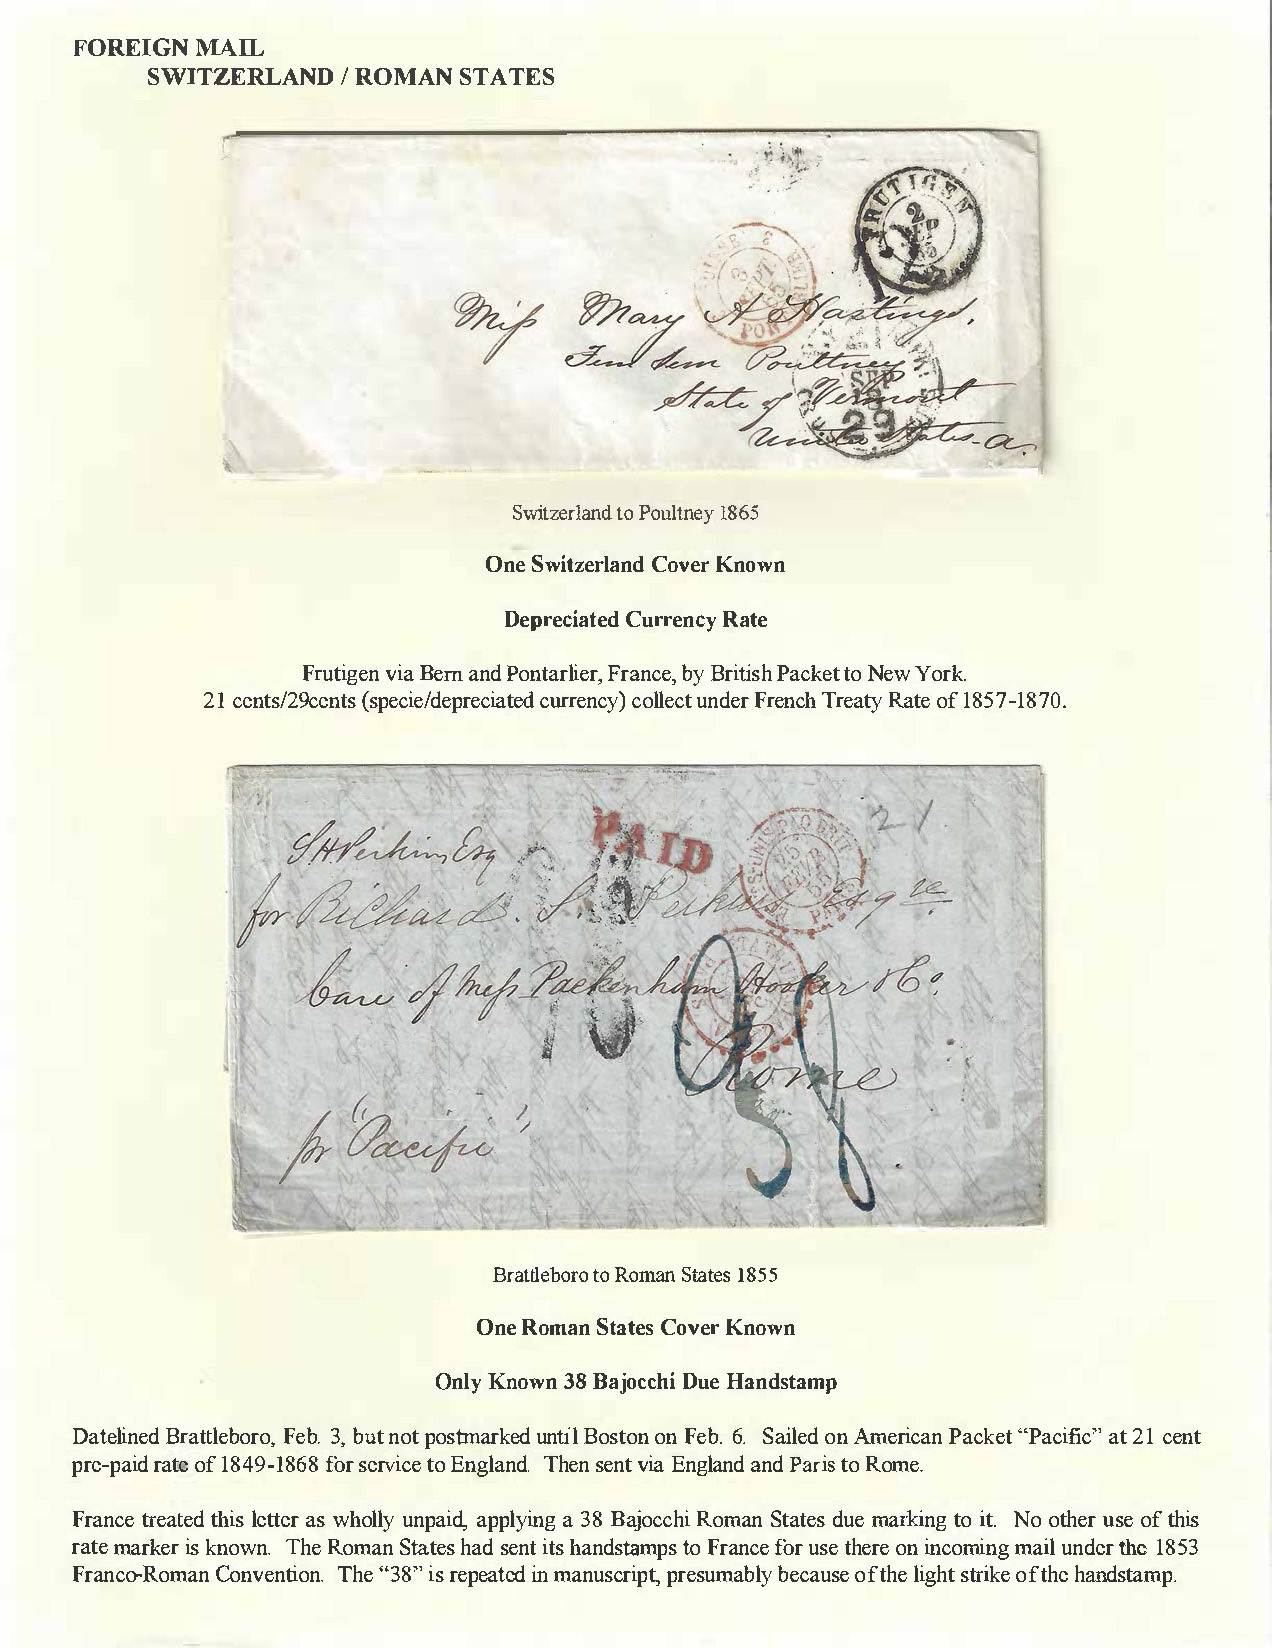 FOREIGN MAIL
SWITZERLAND / ROMAN STATES
FRUTIGEN
2
SEP
65
SUISSE
3
3
SEPT.
65
PON
Miss Mary H Hastings,
Poultney
State of Vermont
United States-a.
SEP
29
Switzerland to Poultney 1865
One Switzerland Cover Known
Depreciated Currency Rate
Frutigen via Bern and Pontarlier, France, by British Packet to New York.
21 cents/29cents (specie/depreciated currency) collect under French Treaty Rate of 1857-1870.
PAID
21
ETATS-UNIS PAQ. BRIT.
25
FEVR
55
S H Perkins, Esq
for Richard S. Perkins Esqre.
Care of Mess Packenham Hooker & Co.
Rome
38
pr "Pacific"
Brattleboro to Roman States 1855
One Roman States Cover Known
Only Known 38 Bajocchi Due Handstamp
Datelined Brattleboro, Feb. 3, but not postmarked until Boston on Feb. 6. Sailed on American Packet “Pacific” at 21 cent
pre-paid rate of 1849-1868 for service to England. Then sent via England and Paris to Rome.
France treated this letter as wholly unpaid, applying a 38 Bajocchi Roman States due marking to it. No other use of this
rate marker is known. The Roman States had sent its handstamps to France for use there on incoming mail under the 1853
Franco-Roman Convention. The “38” is repeated in manuscript, presumably because of the light strike of the handstamp.